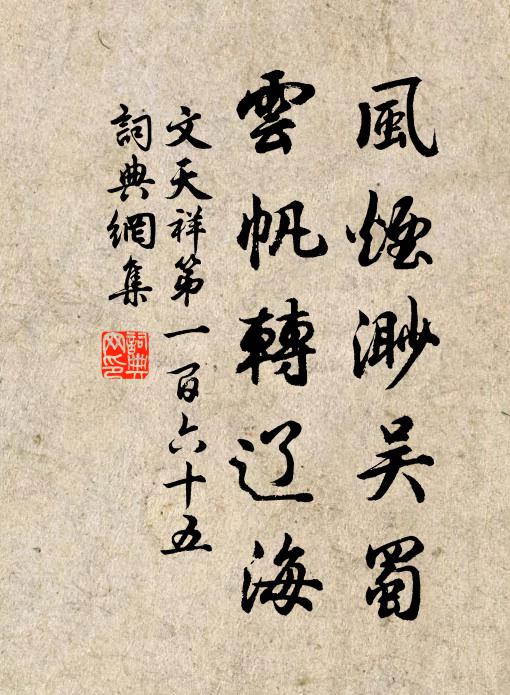 風煙渺吴蜀
雲帆轉辽海
文天祥第一百六十五
詞典網集
詞典網印